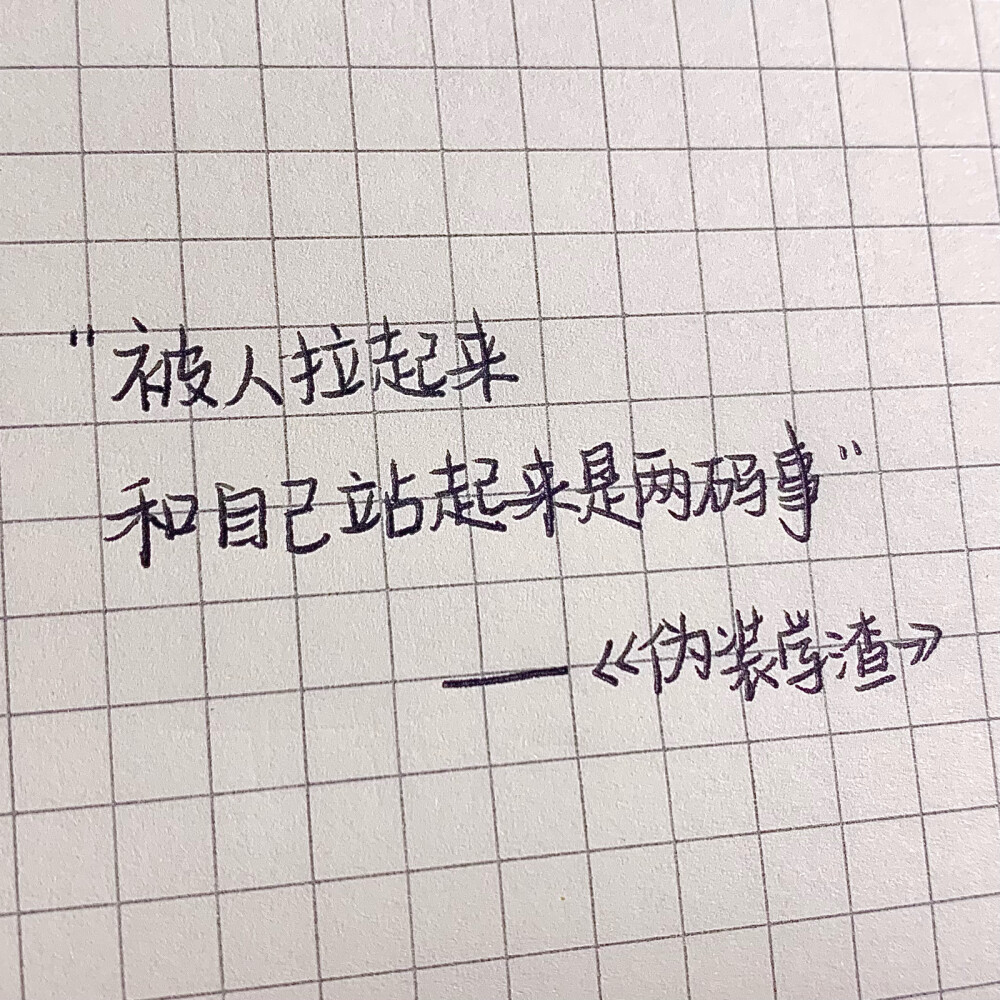 "被人拉起来
和自己站起来是两码事"
——《伪装学渣》